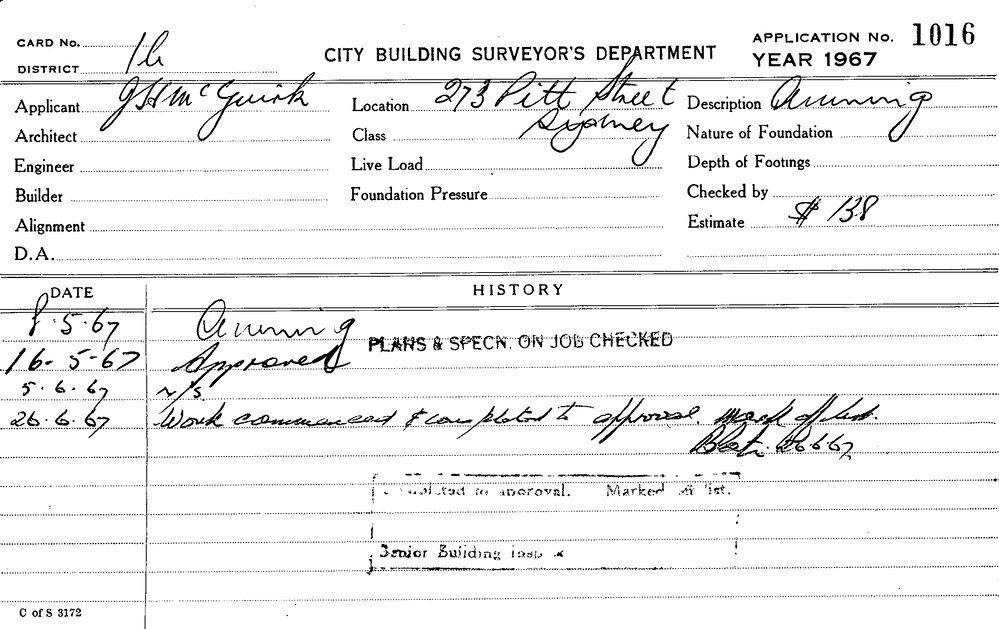 CARD No.
DISTRICT 1b
CITY BUILDING SURVEYOR'S DEPARTMENT
APPLICATION No. 1016
YEAR 1967
Applicant J S H McGuirk
Architect
Engineer
Builder
Alignment
D.A.
Location 273 Pitt Street
Sydney
Class
Live Load
Foundation Pressure
Description Awning
Nature of Foundation
Depth of Footings
Checked by
Estimate $ 138
DATE HISTORY
8.5.67 Awning
PLANS & SPECN. ON JOB CHECKED
16-5-67 Approved
5.6.67 N/S
26.6.67 Work commenced & completed to approval. Mark off list.
26667
to approval. Marked off list.
Senior Building Insp
C of S 3172